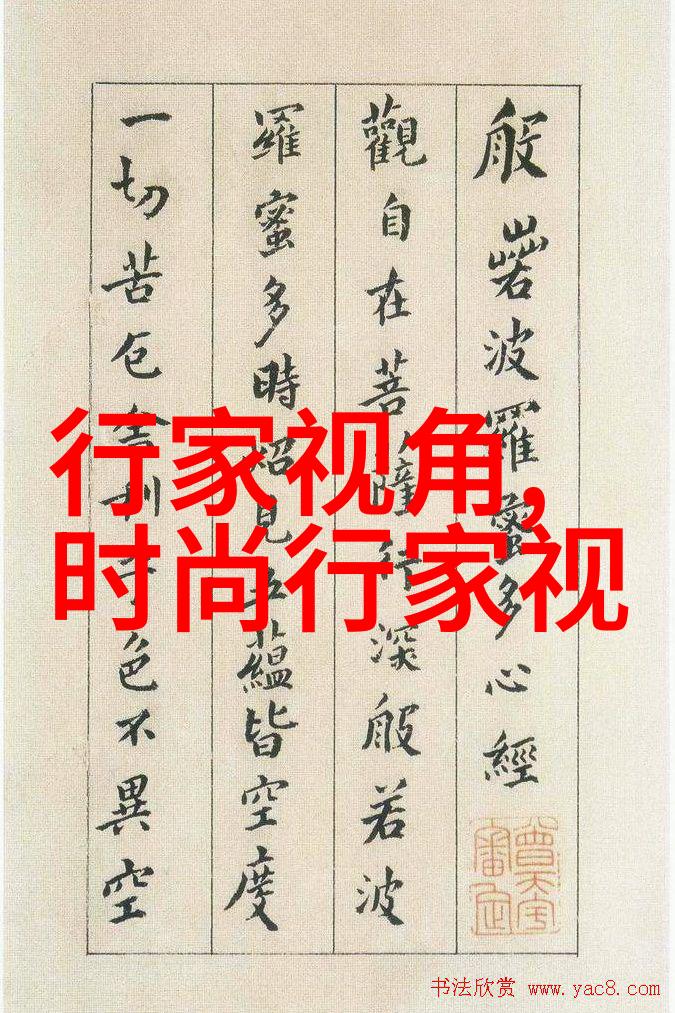 般若波羅蜜多心經
觀自在菩薩行深般若波
羅蜜多時照見五蘊皆空度
一切苦厄舍利子色不異空
行家视角,
时尚行家视
书法欣赏 www.yac8.com